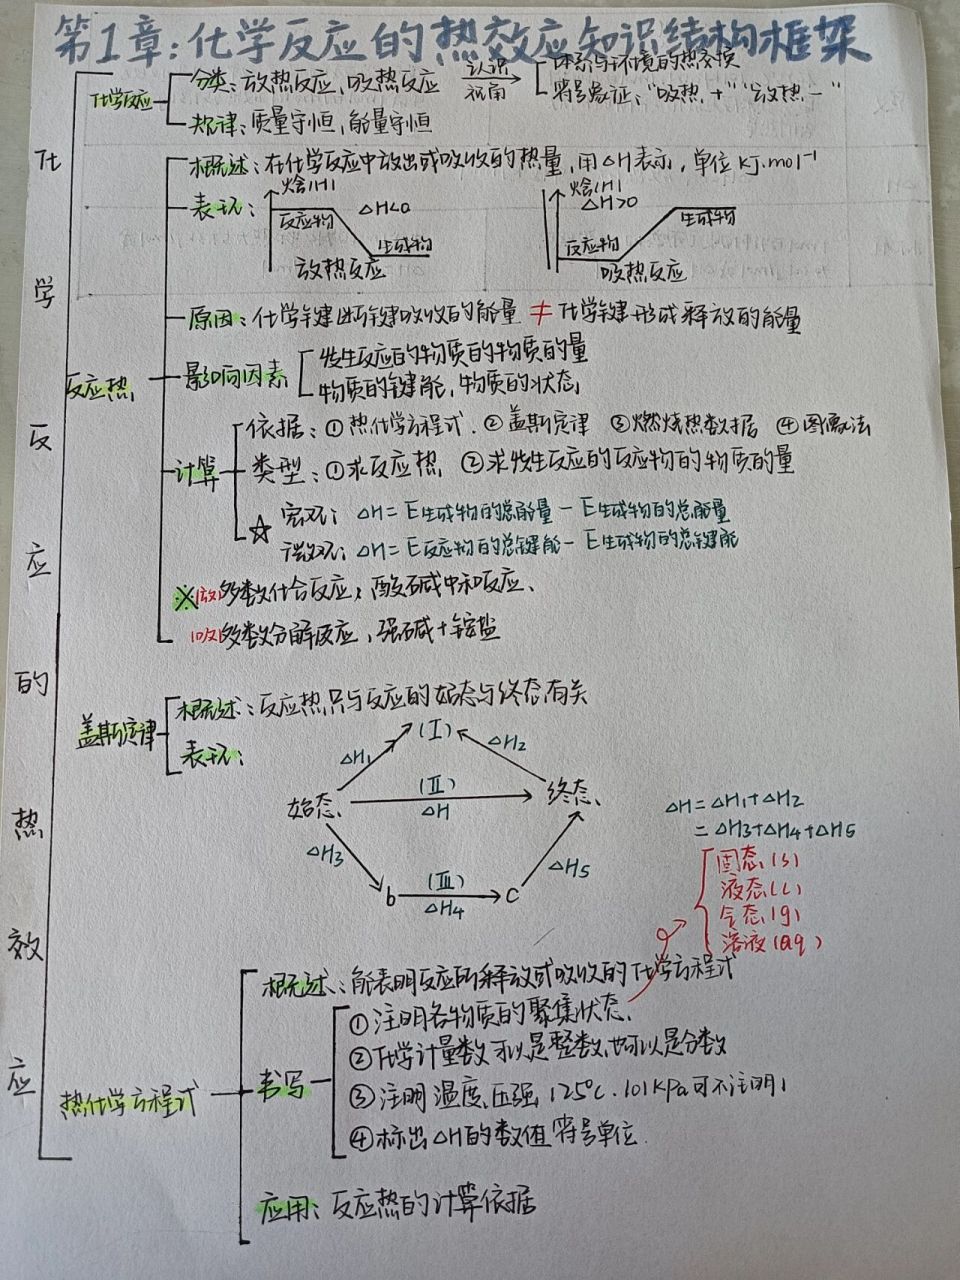 第1章：化学反应的热效应知识结构框架
化学反应的热效应
化学反应
分类：放热反应，吸热反应
认识
视角
体系与环境的热交换
符号象征："吸热 +" "放热 -"
规律：质量守恒，能量守恒
反应热
概述：在化学反应中放出或吸收的热量，用△H表示，单位KJ·mol⁻¹
表现：
焓(H)
反应物
△H<0
生成物
放热反应
焓(H)
△H>0
生成物
反应物
吸热反应
原因：化学键断键吸收的能量 ≠ 化学键形成释放的能量
影响因素
发生反应的物质的物质的量
物质的键能，物质的状态
计算
依据：①热化学方程式．②盖斯定律 ③燃烧热数据 ④图像法
类型：①求反应热 ②求发生反应的反应物的物质的量
☆
宏观：△H=E生成物的总能量-E生成物的总能量
微观：△H=E反应物的总键能-E生成物的总键能
※(放)多数化合反应；酸碱中和反应、
(吸)多数分解反应，强碱+铵盐
盖斯定律
概述：反应热只与反应的始态与终态有关
表现：
(Ⅰ)
△H₁
△H₂
始态
(Ⅱ)
△H
终态
△H₃
△H₅
b
(Ⅲ)
△H₄
C
△H=△H₁+△H₂
=△H₃+△H₄+△H₅
固态(s)
液态(l)
气态(g)
溶液(aq)
热化学方程式
概述：能表明反应所释放或吸收的化学方程式
书写
①注明各物质的聚集状态、
②化学计量数可以是整数,也可以是分数
③注明温度、压强，(25℃．101KPa可不注明)
④标出△H的数值符号单位
应用：反应热的计算依据